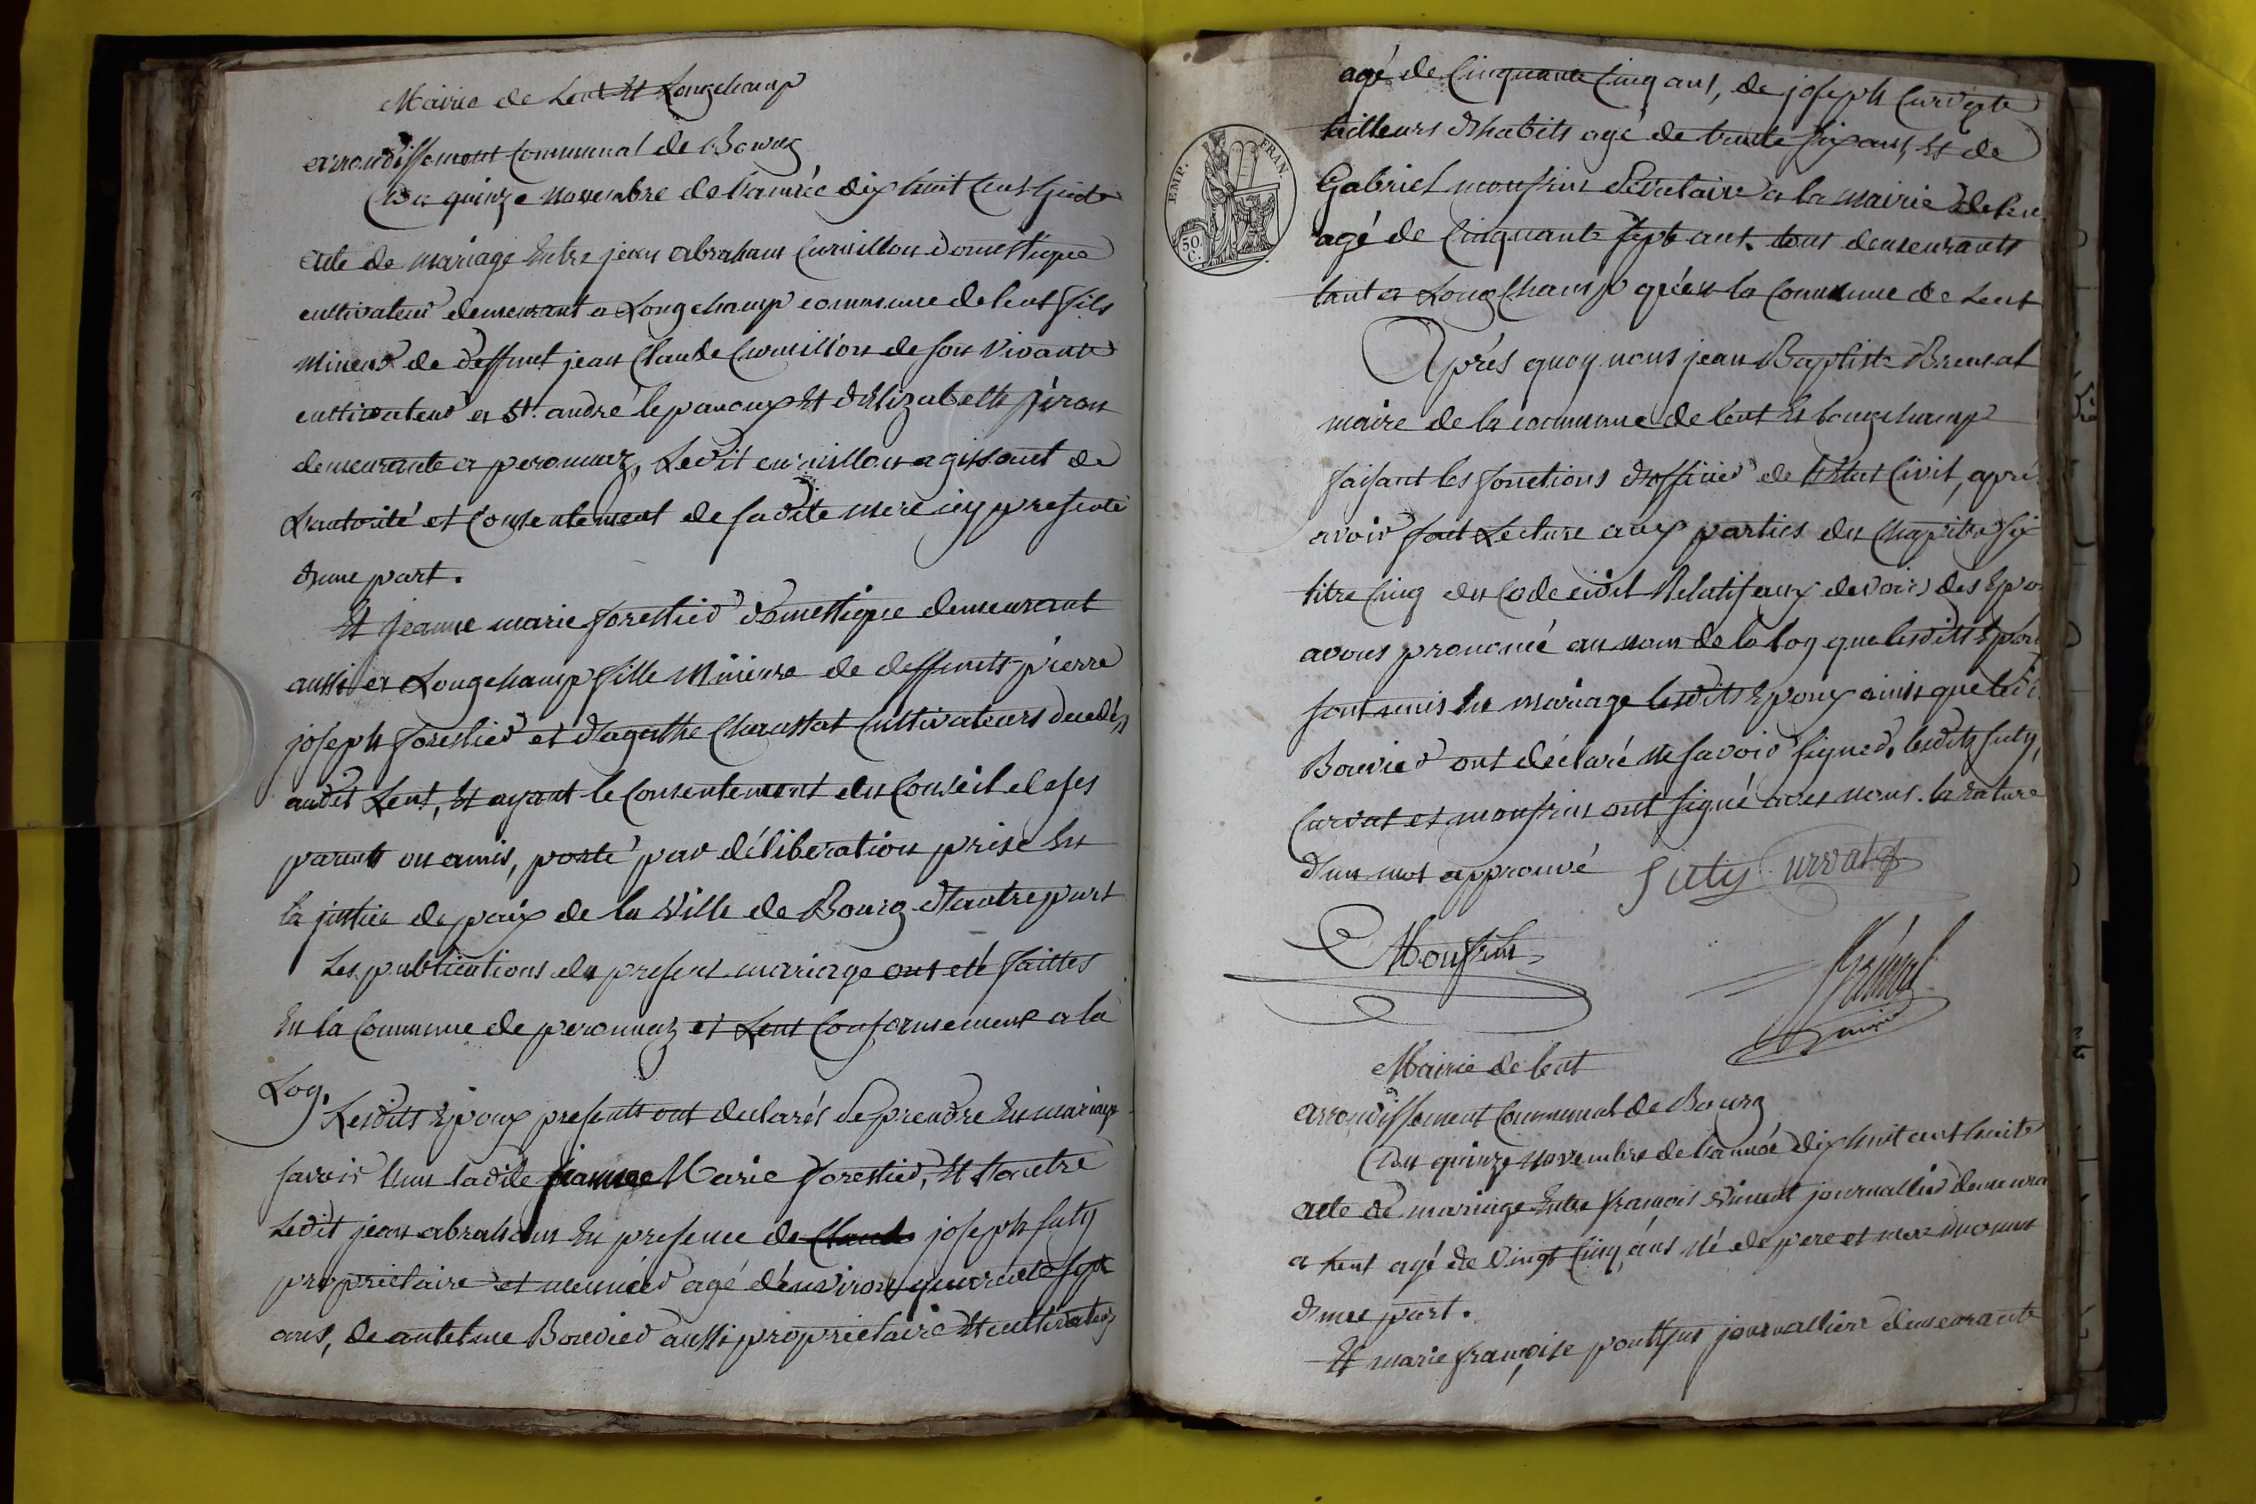 Mairie de Lent Et Longchamp
arrondissement Communal de Bourg
Du quinze novembre de l'année dix huit Cent huit
acte de mariage Entre jean abraham Curnillon domestique
cultivateur demeurant a Longchamp commune de lent fils
mineur de deffunt jean Claude Curnillon de son vivant
cultivateur a St. andré lepanoux Et d'Elizabeth piron
demeurante a peronnaz, Ledit curnillon agissant de
L'autorité et Consentement de sadite mere icy presente
d'une part.
Et jeanne marie forestier domestique demeurant
aussi a Longchamp fille Mineure de deffunts pierre
joseph forestier et d'agathe Charassat Cultivateurs decedés
audit Lent, Et ayant le Consentement du Conseil de ses
parents ou amis, porté par déliberation prise En
la justice de paix de la Ville de Bourg d'autre part
Les publications du present mariage ont eté faittes
En la Commune de peronnaz et Lent Conformement a la
Loy.
Lesdits Epoux presents ont declarés se prendre En mariage
savoir l'un ladite jeanne Marie forestier, Et l'autre
Ledit jean abraham En presence de Claude joseph futy
proprietaire et meunier agé d'environ quarente sept
ans, de antelme Bouvier aussi proprietaire Et cultivateur
agé de Cinquante Cinq ans, de joseph Curvat
tailleurs d'habits agé de trente six ans, Et de
Gabriel monfrin Secretaire a la mairie de len
agé de Cinquante sept ans. tous demeurants
tant a Longchamp qu'en la Commune de Lent
Après quoy nous jean Baptiste
maire de la commune de lent Et longchamp
faisant les fonctions d'officier de l'Etat Civil, apré
avoir fait Lecture aux parties du Chapitre six
titre Cinq du Code civil Relatif aux devoirs des Epo
avons prononcé au nom de la loy que lesdits Epou
sont unis En mariage lesdits Epoux ainsi que ledi
Bouvier ont déclaré ne savoir signer. lesdits futy,
Curvat et monfrin ont signé avec nous. la rature
d'un mot approuvé futy Curvat
Monfrin
maire
EMP. FRAN.
50 C.
Mairie de lent
arrondissement Communal de Bourg
Du quinze novembre de l'année dix huit cent huit
acte de mariage Entre françois Vincent journallier demeura
a lent agé de Vingt Cinq ans né de pere et mere inconnus
d'une part.
Et marie françoise journalliere demeurante